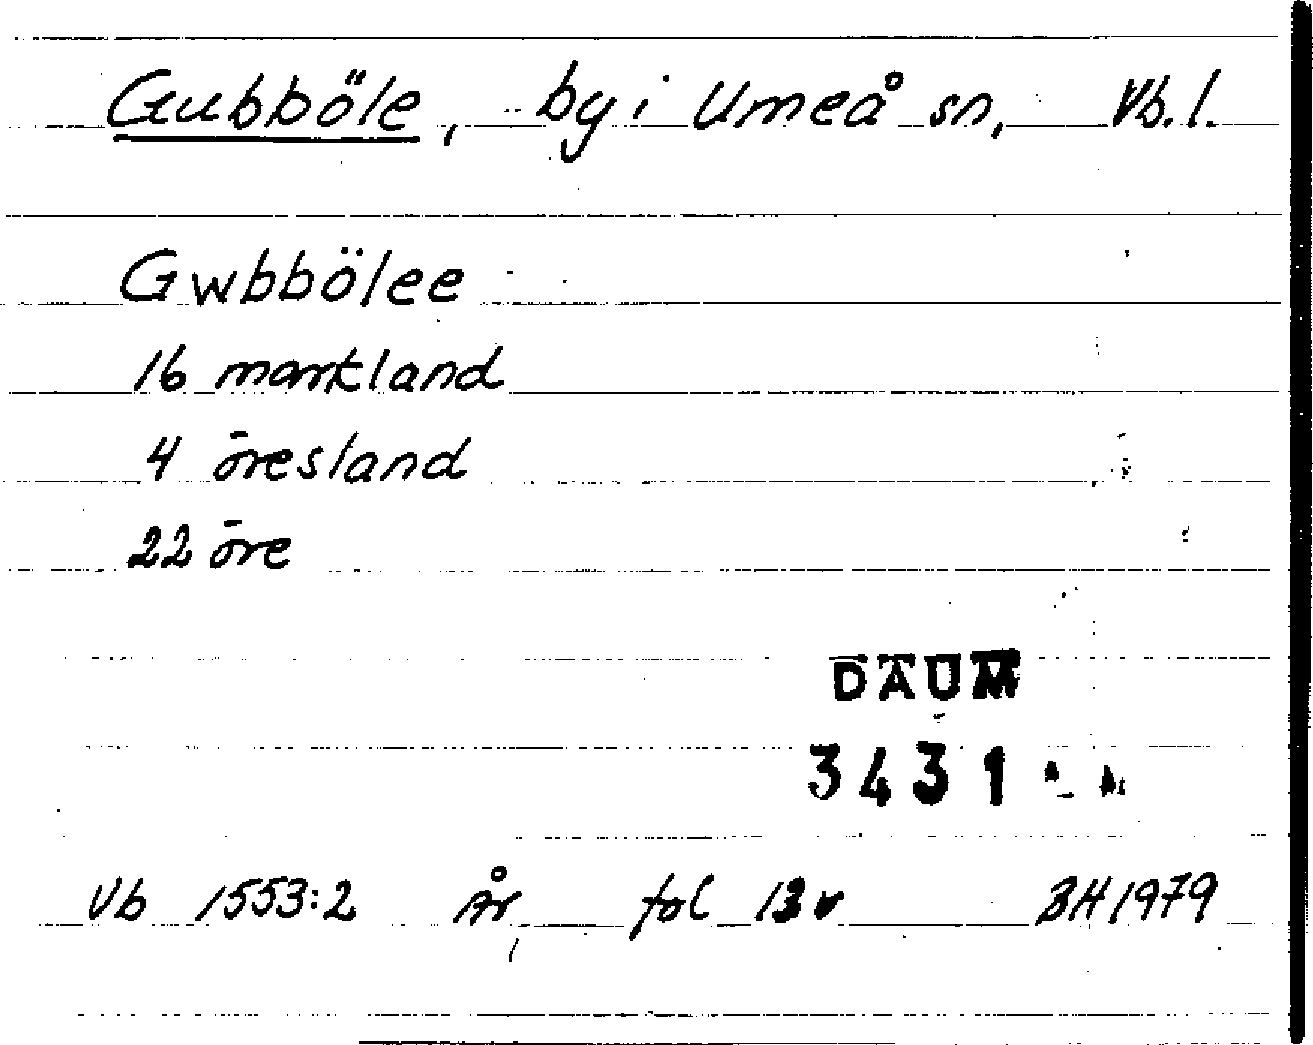 Gubböle, by i Umeå sn, Vb. l.
Gwbbölee
16 markland
4 öresland
22 öre
DAUM
3431
Vb 1553:2 År fol 13v BH 1979